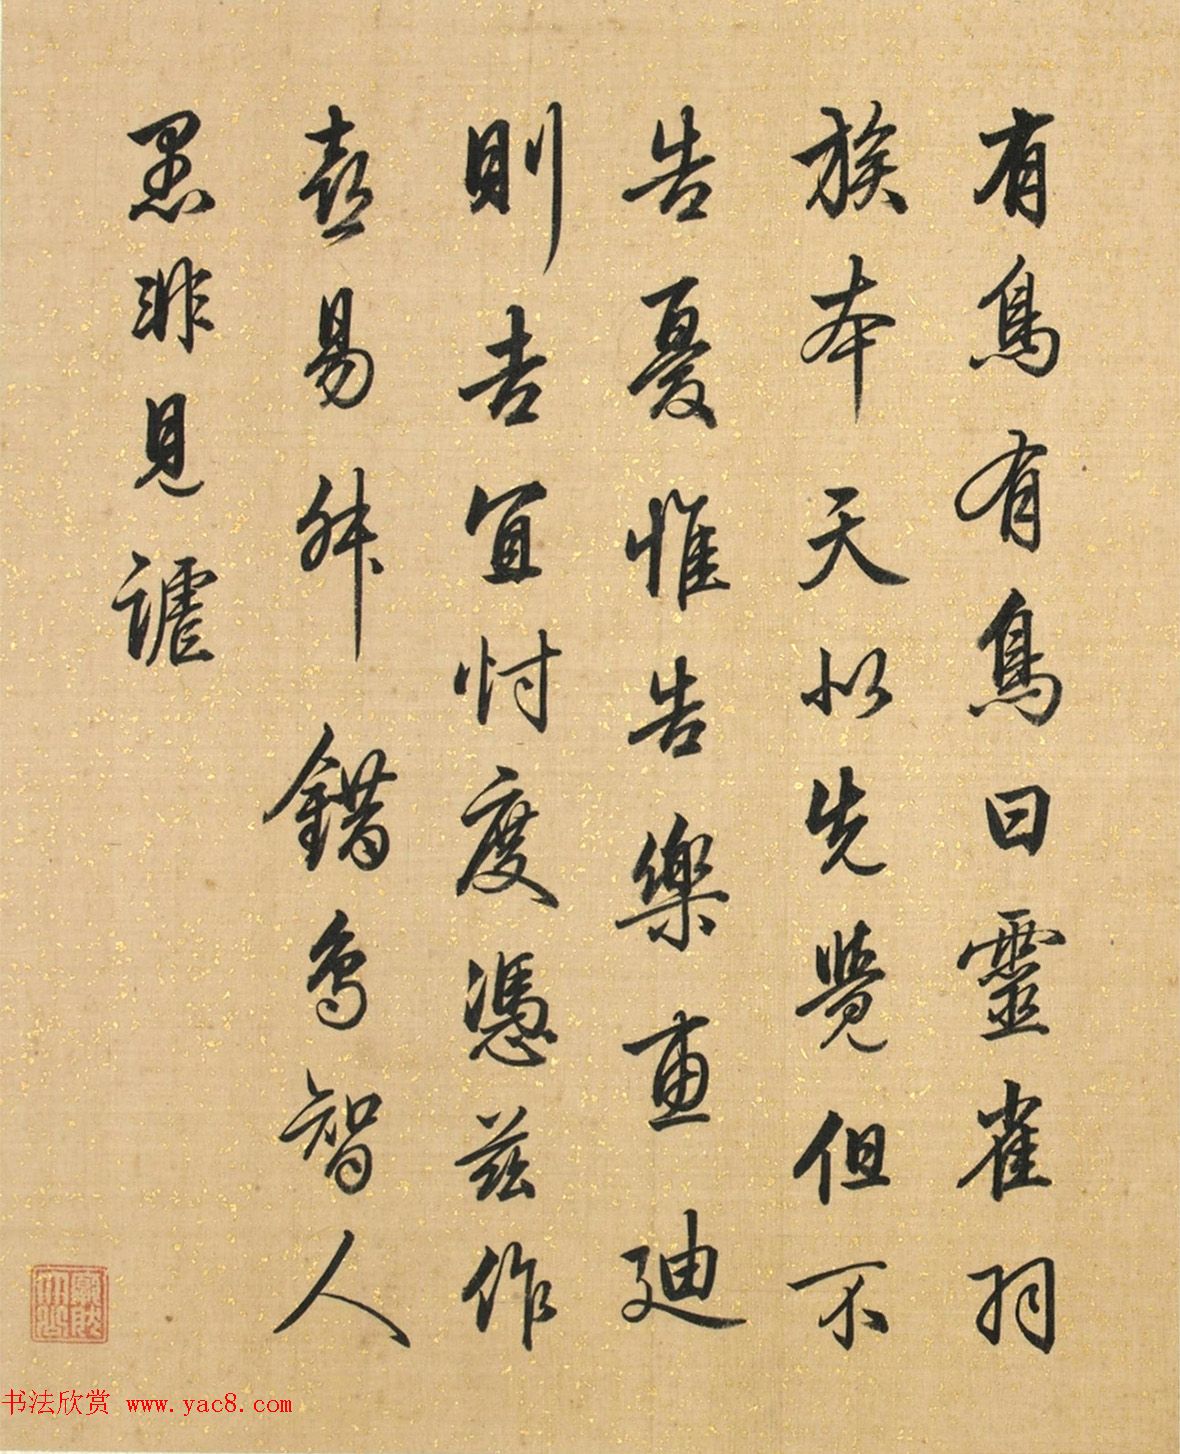 有鳥有鳥曰靈雀羽
族本天以先覺但不
告憂惟告樂惠廸
則吉宜忖度憑茲作
喜易舛錯鳥智人
愚非見謔
廓然大公
书法欣赏 www.yac8.com